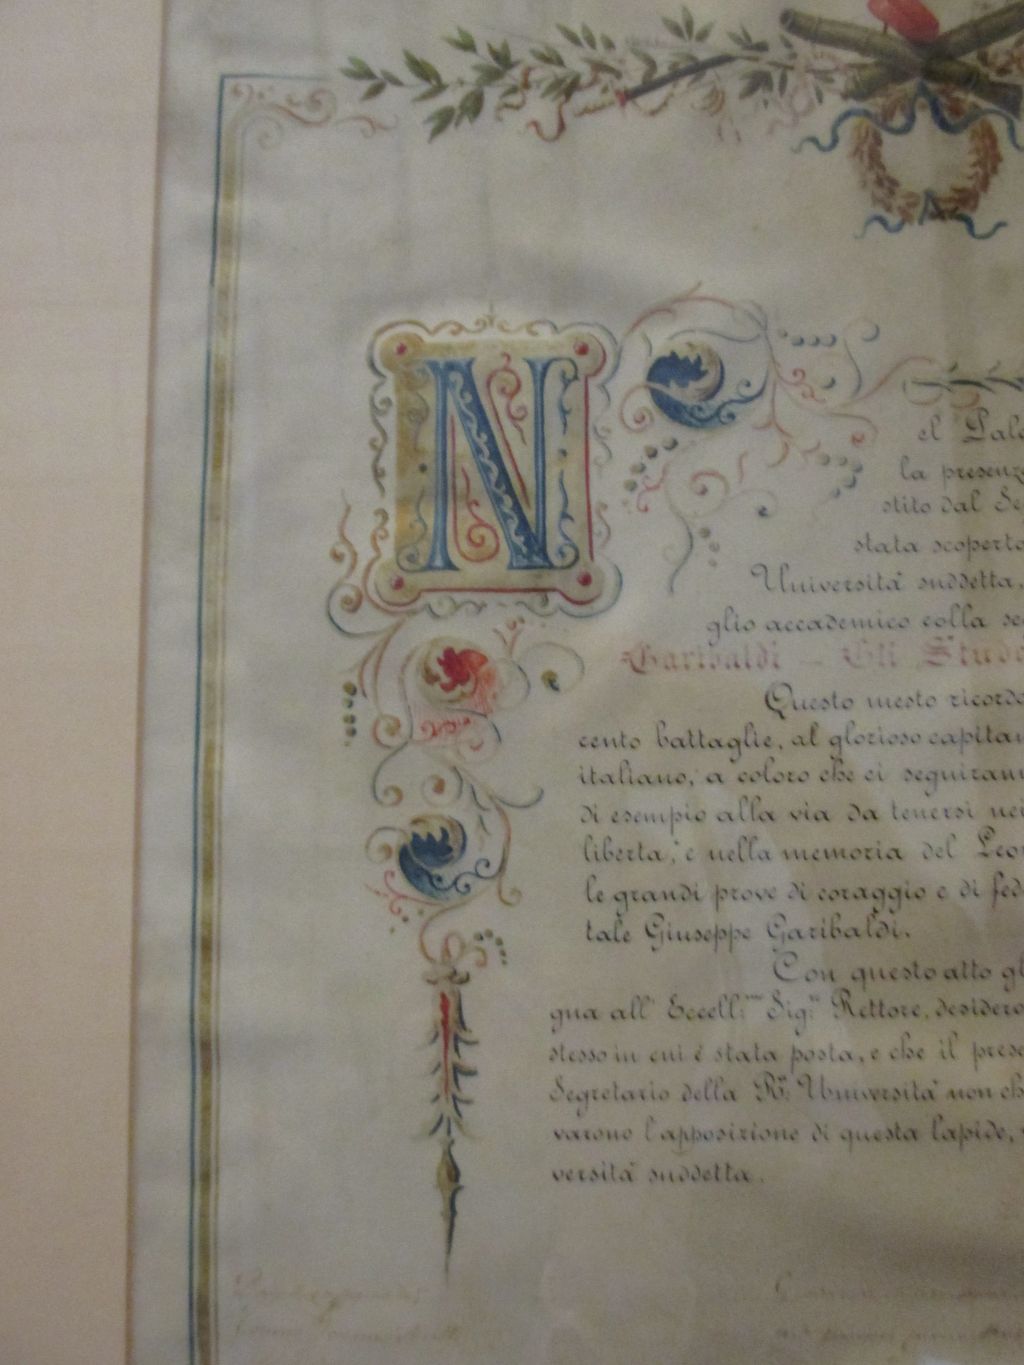 N
el Pala
la presenza
stito dal Se
stata scoperto
Università suddetta,
glio accademico colla se
Garibaldi — Gli Stude
Questo mesto ricordo
cento battaglie, al glorioso capitan
italiano, a coloro che ci seguirann
di esempio alla via da tenersi nei
libertà, e nella memoria del Leon
le grandi prove di coraggio e di fed
tale Giuseppe Garibaldi.
Con questo atto gl
gna all' Eccell:mo Sig:r Rettore, desidero
stesso in cui è stata posta, e che il prese
Segretario della R:a Università non ch
varono l'apposizione di questa lapide,
versità suddetta.